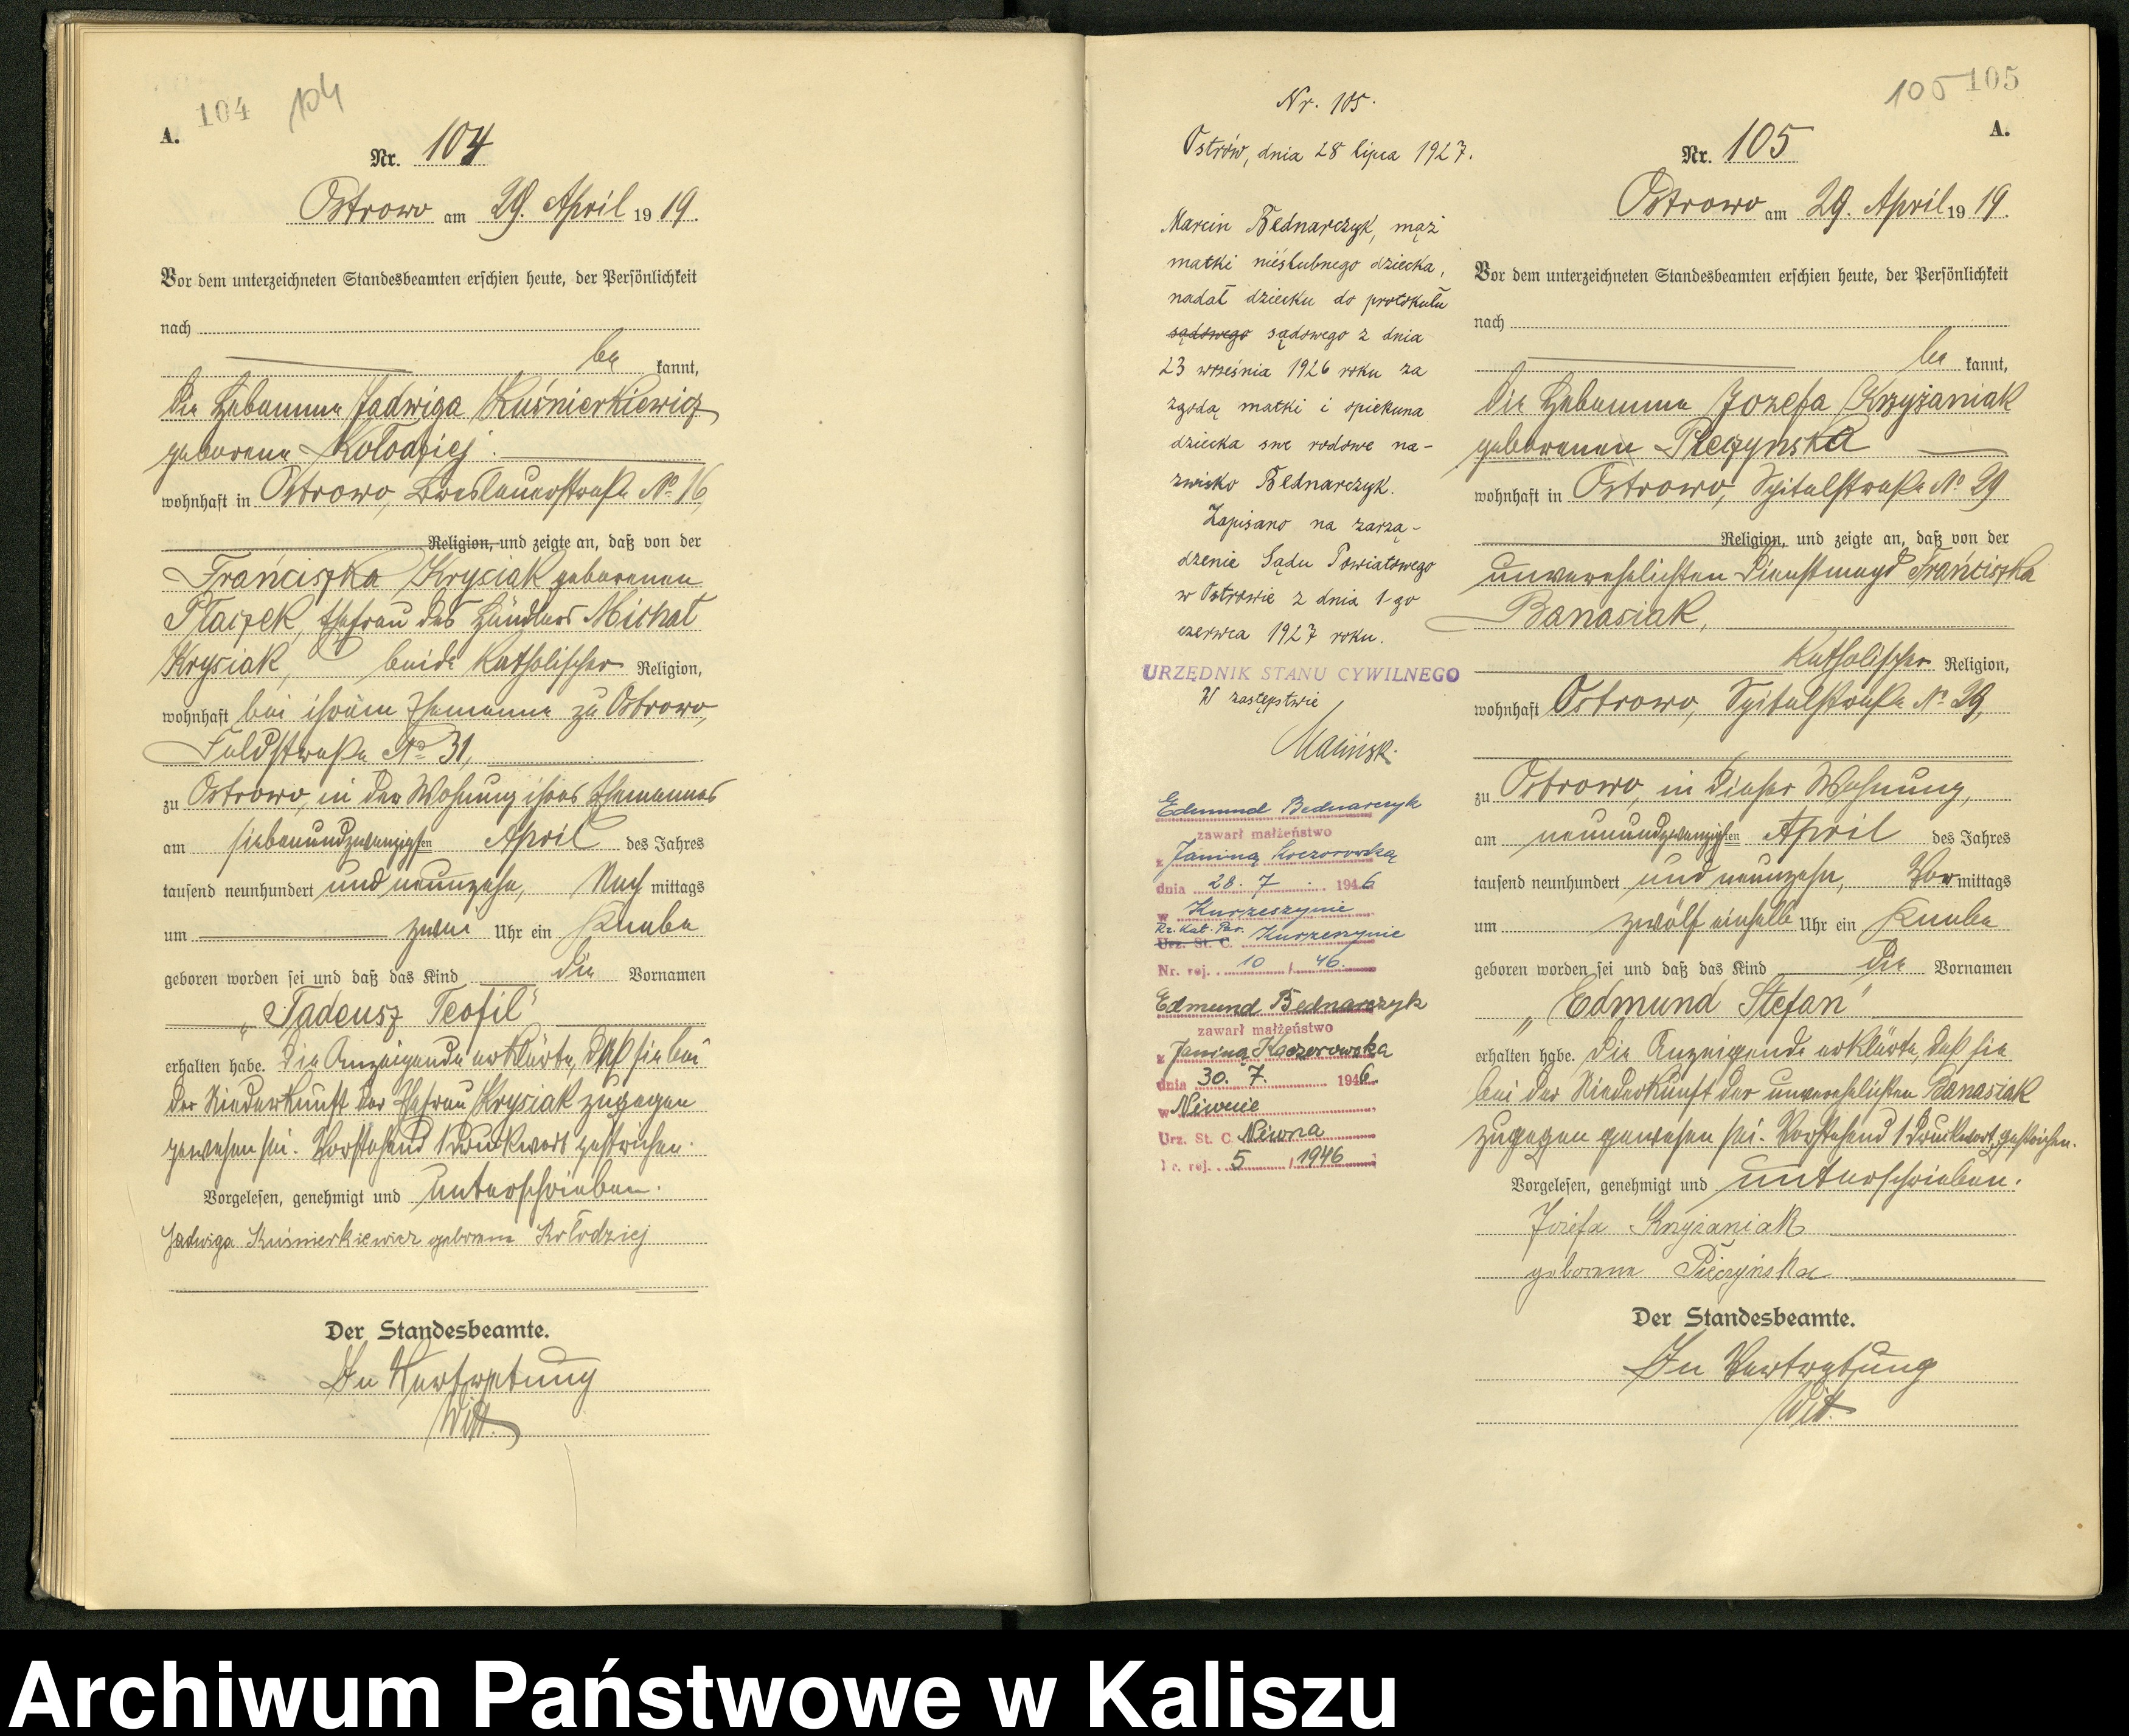 104 104
A.
Nr. 104
Ostrowo am 29. April 19 19.
Vor dem unterzeichneten Standesbeamten erschien heute, der Persönlichkeit
nach
be kannt,
die Hebamme Jadwiga Kuśnierkiewicz
geborene Kołodziej
wohnhaft in Ostrowo, Breslauerstraße No 16,
Religion, und zeigte an, daß von der
Franciszka Krysiak geborenen
Ptaczek, Ehefrau des Händlers Michał
Krysiak, beide katholischer Religion,
wohnhaft bei ihrem Ehemanne zu Ostrowo,
Feldstraße No 31,
zu Ostrowo, in der Wohnung ihres Ehemannes
am siebenundzwanzigsten April des Jahres
tausend neunhundert und neunzehn, Nach mittags
um zwei Uhr ein Knabe
geboren worden sei und daß das Kind die Vornamen
„Tadeusz Teofil“
erhalten habe. Die Anzeigende erklärte, daß sie bei
der Niederkunft der Ehefrau Krysiak zugegen
gewesen sei. Vorstehend 1 Druckwort gestrichen.
Vorgelesen, genehmigt und unterschrieben.
Jadwiga Kuśnierkiewicz geborene Kołodziej
Der Standesbeamte.
In Vertretung
Witt.
Nr. 105.
Ostrów, dnia 28 lipca 1927.
Marcin Bednarczyk, mąż
matki nieślubnego dziecka,
nadał dziecku do protokułu
sądowego sądowego z dnia
23 września 1926 roku za
zgodą matki i opiekuna
dziecka swe rodowe na-
zwisko Bednarczyk.
Zapisano na zarzą-
dzenie Sądu Powiatowego
w Ostrowie z dnia 1-go
czerwca 1927 roku.
URZĘDNIK STANU CYWILNEGO
W zastępstwie
Edmund Bednarczyk
zawarł małżeństwo
z Janiną Koczorowską
dnia 28. 7. 1946
w Kurzeszynie
Rz. Kat. Par.
Urz. St. C. Kurzeszynie
Nr. rej. 10 / 46.
Edmund Bednarczyk
zawarł małżeństwo
z Janiną Kaczorowska
dnia 30. 7. 1946.
w Niwnie
Urz. St. C. Niwna
Nr. rej. 5 / 1946
105 105
A.
Nr. 105
Ostrowo am 29. April 19 19.
Vor dem unterzeichneten Standesbeamten erschien heute, der Persönlichkeit
nach
be kannt,
die Hebamme Jozefa Krzyżaniak
geborenen Pieczyńska
wohnhaft in Ostrowo, Spitalstraße No 29
Religion, und zeigte an, daß von der
unverehelichten Dienstmagd Franciszka
Banasiak,
katholischer Religion,
wohnhaft Ostrowo, Spitalstraße No 29,
zu Ostrowo, in dieser Wohnung,
am neunundzwanzigsten April des Jahres
tausend neunhundert und neunzehn, Vor mittags
um zwölf einhalb Uhr ein Knabe
geboren worden sei und daß das Kind die Vornamen
„Edmund Stefan“
erhalten habe. Die Anzeigende erklärte, daß sie
bei der Niederkunft der unverehelichten Banasiak
zugegen gewesen sei. Vorstehend 1 Druckwort gestrichen.
Vorgelesen, genehmigt und unterschrieben.
Józefa Krzyżaniak
geborene Pieczyńska
Der Standesbeamte.
In Vertretung
Witt.
Archiwum Państwowe w Kaliszu